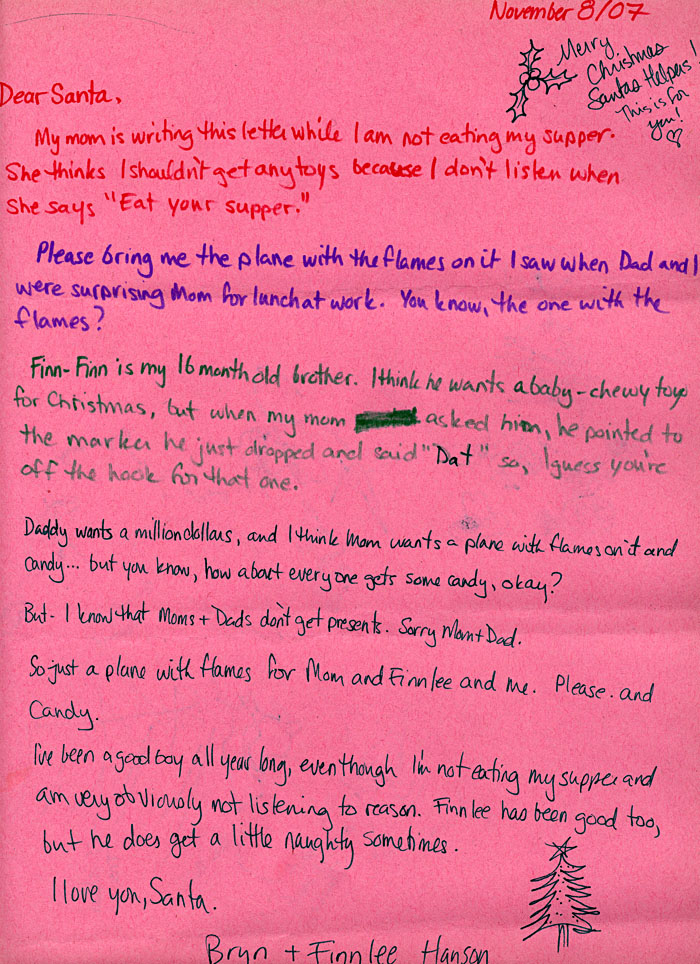 November 8/07
Merry
Christmas
Santas Helpers!
This is for
you!
Dear Santa,
My mom is writing this letter while I am not eating my supper.
She thinks I shouldn't get any toys because I don't listen when
she says "Eat your supper."
Please bring me the plane with the flames on it I saw when Dad and I
were surprising Mom for lunch at work. You know, the one with the
flames?
Finn-Finn is my 16 month old brother. I think he wants a baby-chewy toy
for Christmas, but when my mom asked him, he pointed to
the marker he just dropped and said "Dat" so, I guess you're
off the hook for that one.
Daddy wants a million dollars, and I think Mom wants a plane with flames on it and
candy... but you know, how about everyone gets some candy, okay?
But - I know that Moms + Dads don't get presents. Sorry Mom + Dad.
So just a plane with flames for Mom and Finnlee and me. Please. and
Candy.
I've been a good boy all year long, even though I'm not eating my supper and
am very obviously not listening to reason. Finnlee has been good too,
but he does get a little naughty sometimes.
I love you, Santa.
Bryn + Finnlee Hanson